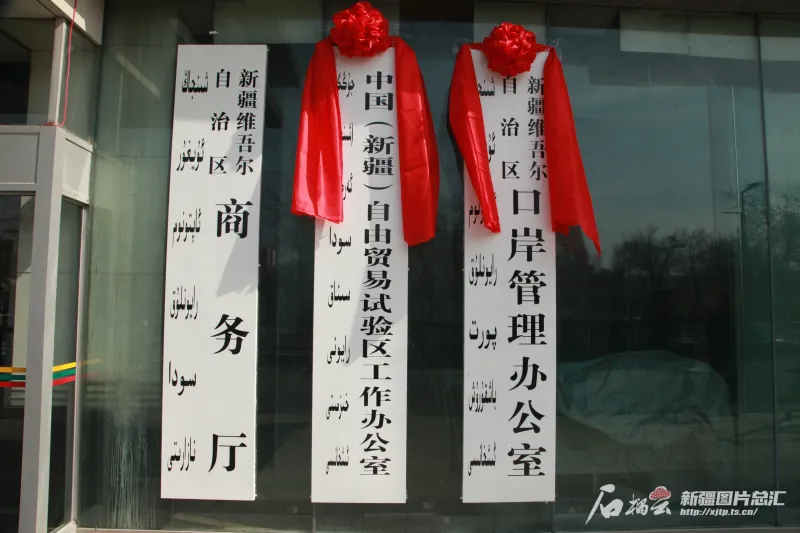 شىنجاڭ
ئۇيغۇر
ئاپتونوم
رايونلۇق
سودا
نازارىتى
新疆维吾尔
自治区
商务厅
سودا
سىناق
رايونى
خىزمىتى
ئىشخانىسى
中国（新疆）自由贸易试验区工作办公室
رايونلۇق
پورت
باشقۇرۇش
ئىشخانىسى
新疆维吾尔
自治区
口岸管理办公室
石榴云
新疆图片总汇
http://xjtp.ts.cn/